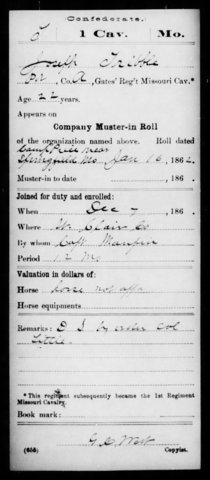 Confederate.
1 Cav. Mo.
Joseph Tribble
Pvt, Co. A, Gates' Reg't Missouri Cav.*
Age 22 years.
Appears on
Company Muster-in Roll
of the organization named above. Roll dated
Camp Price near
Springfield Mo Jan 16, 1862.
Muster-in to date , 186 .
Joined for duty and enrolled:
When Dec , 186 .
Where St. Clair Co
By whom Capt
Period 12 Mo
Valuation in dollars of:
Horse horse not
Horse equipments
Remarks: by order Col
Little.
*This regiment subsequently became the 1st Regiment
Missouri Cavalry.
Book mark:
West
(655) Copyist.